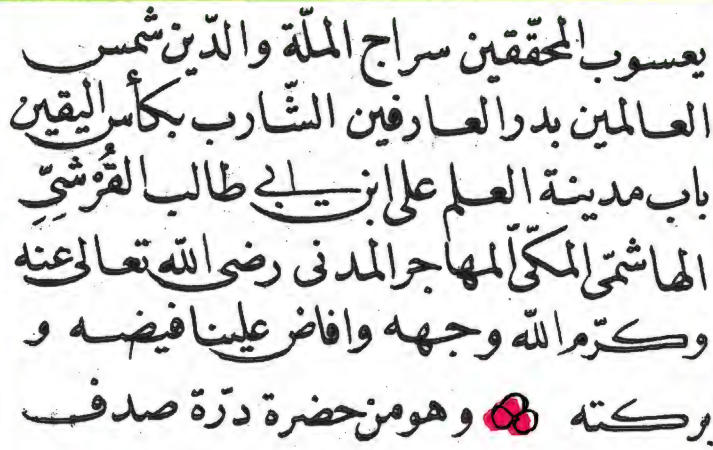 يعسوب المحقّقين سراج الملّة والدّين شمس
العالمين بدر العارفين الشّارب بكأس اليقين
باب مدينة العلم على ابن ابى طالب القُرَشِيِّ
الهاشمّى المكّىّ المهاجر المدنى رضى الله تعالى عنه
وكرّم الله وجهه وافاض علينا فيضه و
بركته وهو من حضرة درّة صدف